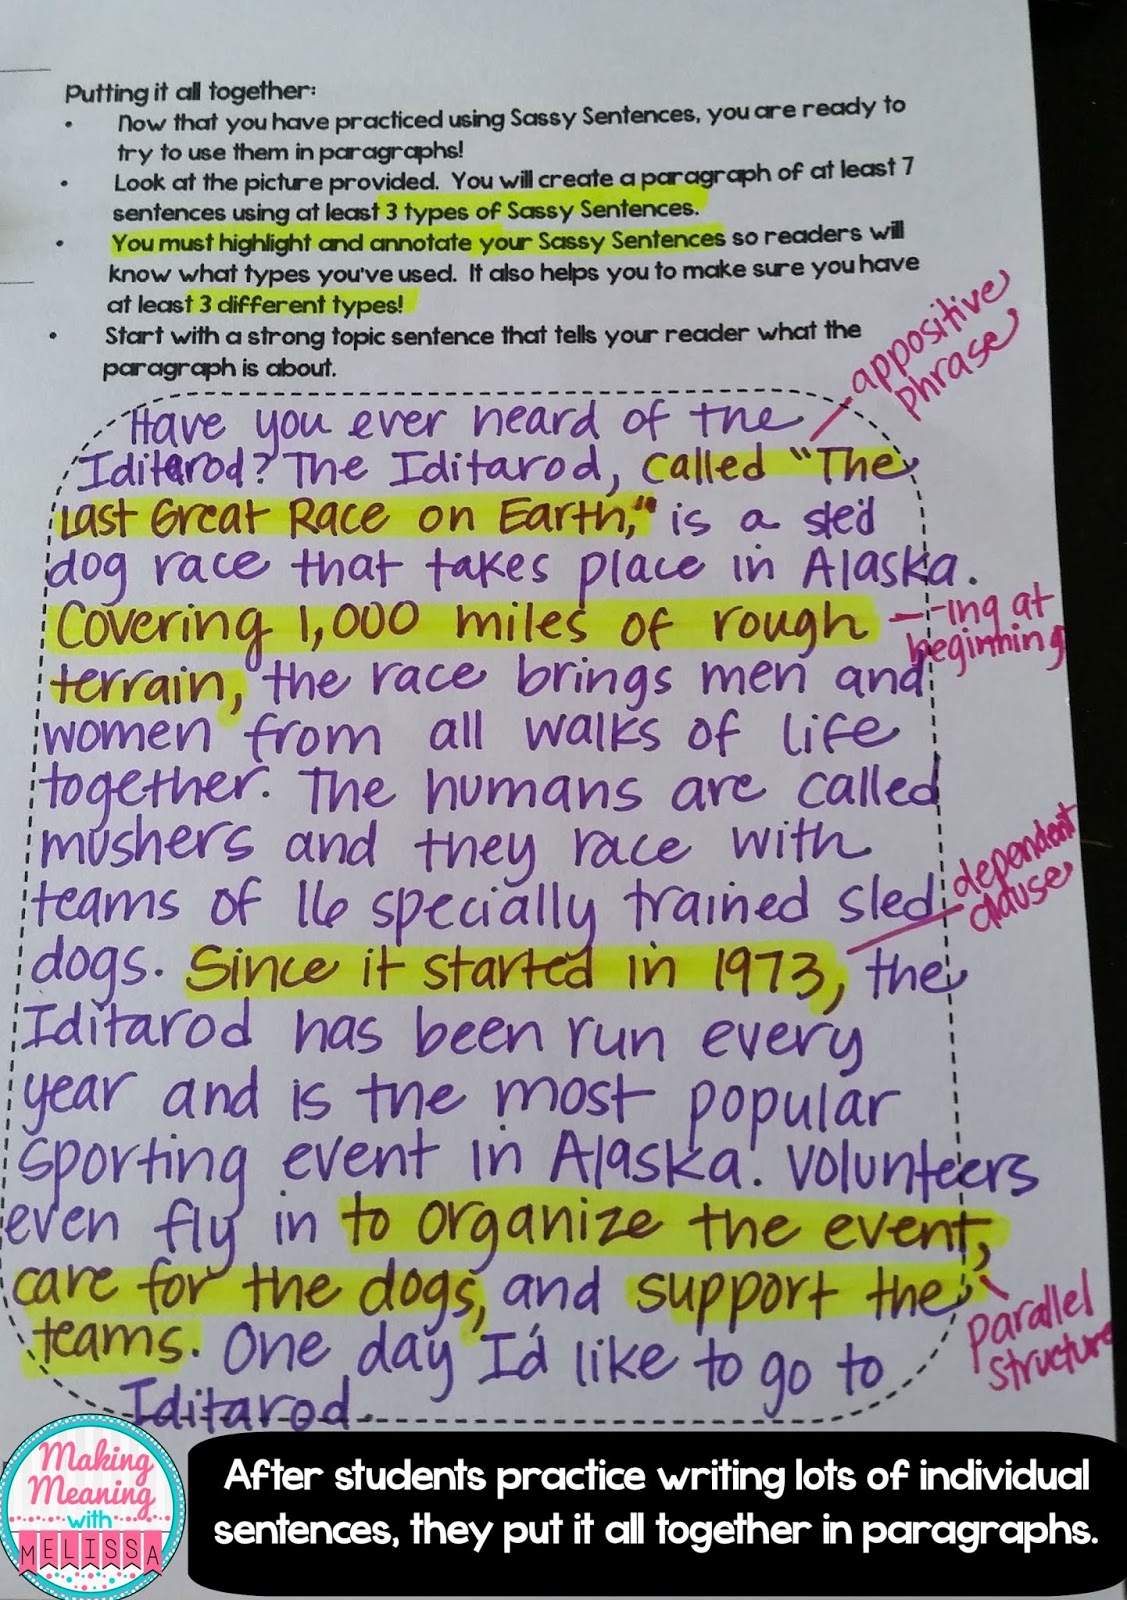 Putting it all together:
• Now that you have practiced using Sassy Sentences, you are ready to
try to use them in paragraphs!
• Look at the picture provided. You will create a paragraph of at least 7
sentences using at least 3 types of Sassy Sentences.
• You must highlight and annotate your Sassy Sentences so readers will
know what types you've used. It also helps you to make sure you have
at least 3 different types!
• Start with a strong topic sentence that tells your reader what the
paragraph is about.
appositive
phrase
Have you ever heard of the
Iditarod? The Iditarod, called "The
Last Great Race on Earth," is a sled
dog race that takes place in Alaska.
Covering 1,000 miles of rough
- -ing at
beginning
terrain, the race brings men and
women from all walks of life
together. The humans are called
mushers and they race with
teams of 16 specially trained sled
dependent
clause
dogs. Since it started in 1973, the
Iditarod has been run every
year and is the most popular
sporting event in Alaska. Volunteers
even fly in to organize the event,
care for the dogs, and support the
parallel
structure
teams. One day I'd like to go to
Iditarod.
Making
Meaning
with
MELISSA
After students practice writing lots of individual
sentences, they put it all together in paragraphs.